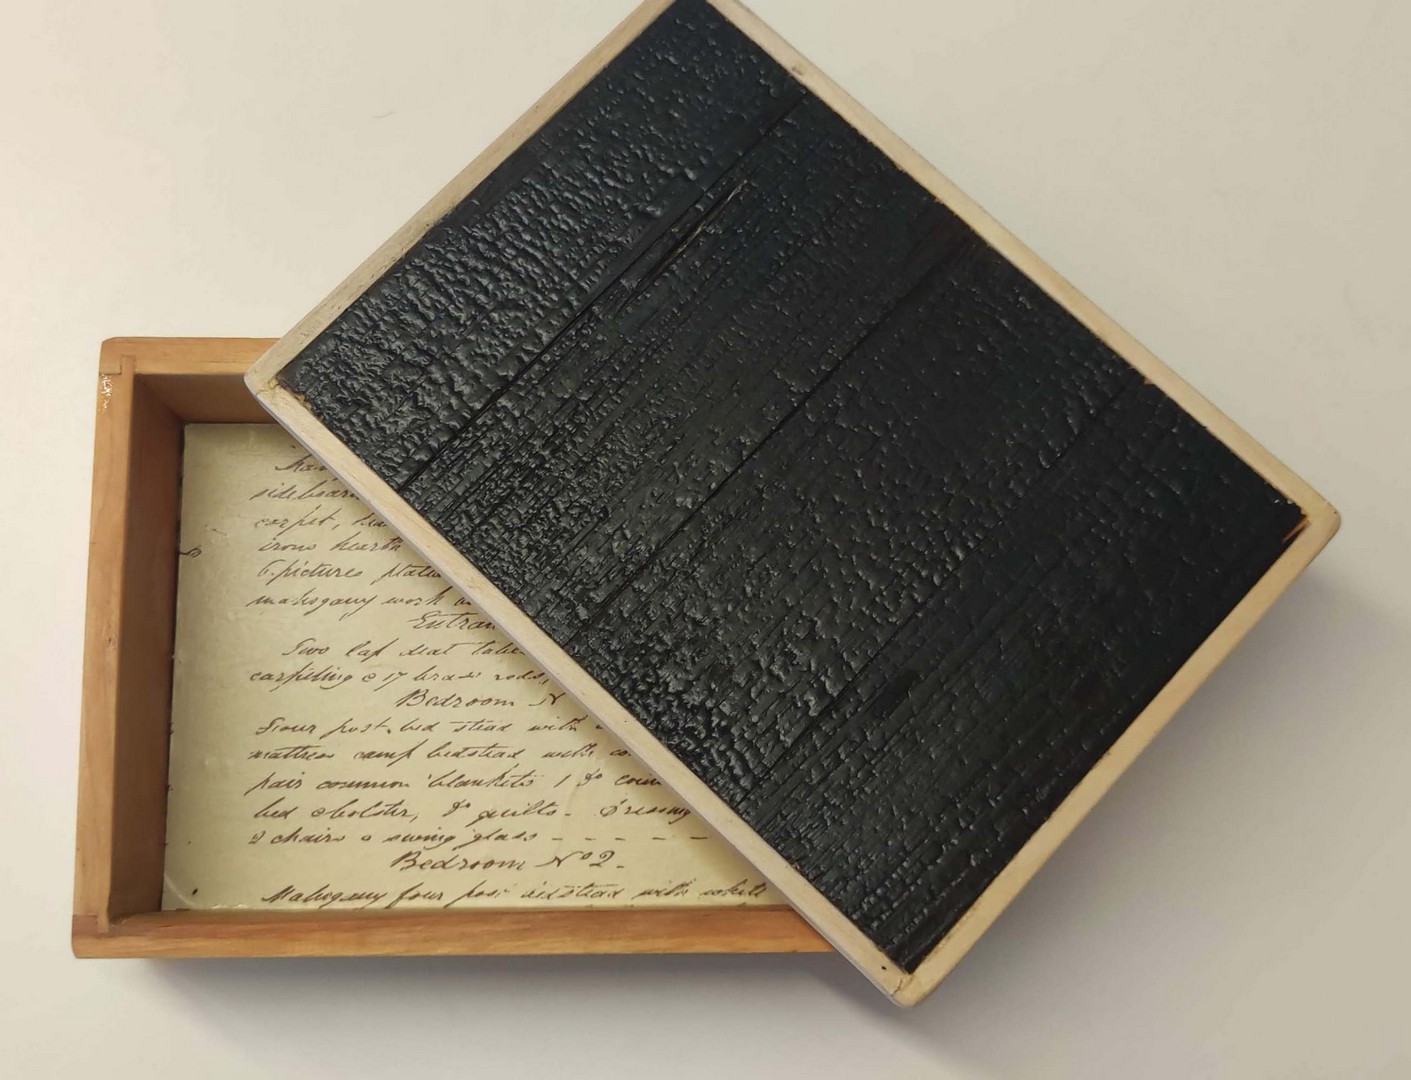 sideboard
carpet,
iron hearth
6 pictures
mahogany work
Entran
Two leaf
carpetting & 17 brass rods,
Bedroom N
Four post bed stead with
mattress camp bedstead with co
pair common blankets 1 do coun
bed & bolster, do quilts - Dressing
2 chairs & swing glass - - - -
Bedroom No 2.
Mahogany four post bedstead with white